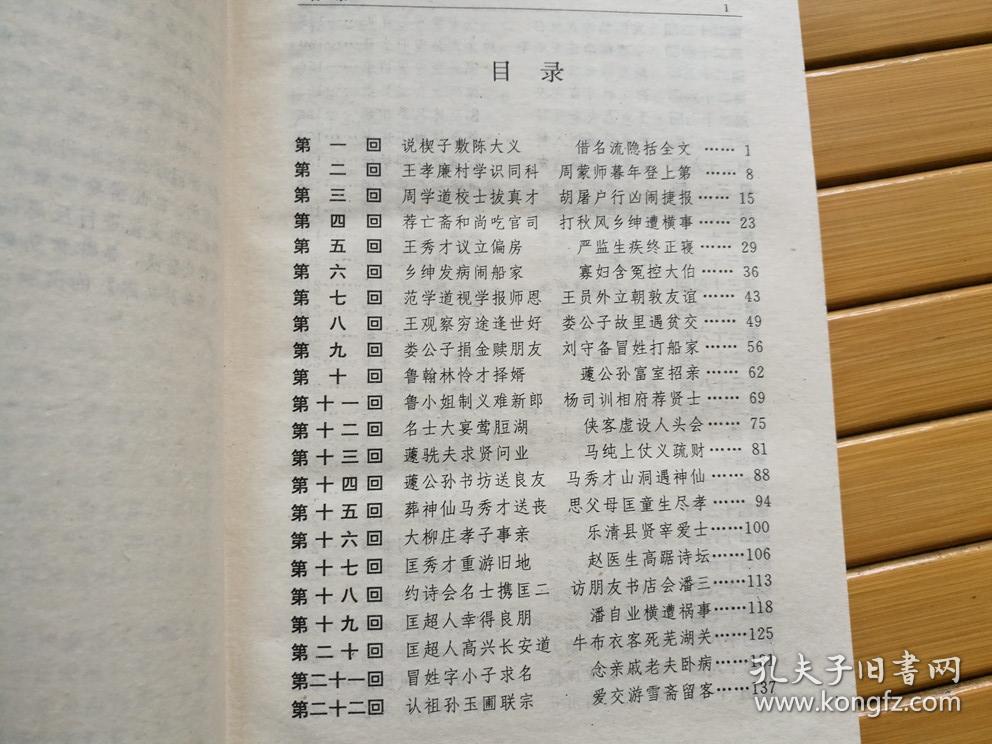 1
目 录
第一回 说楔子敷陈大义 借名流隐括全文 …… 1
第二回 王孝廉村学识同科 周蒙师暮年登上第 …… 8
第三回 周学道校士拔真才 胡屠户行凶闹捷报 …… 15
第四回 荐亡斋和尚吃官司 打秋风乡绅遭横事 …… 23
第五回 王秀才议立偏房 严监生疾终正寝 …… 29
第六回 乡绅发病闹船家 寡妇含冤控大伯 …… 36
第七回 范学道视学报师恩 王员外立朝敦友谊 …… 43
第八回 王观察穷途逢世好 娄公子故里遇贫交 …… 49
第九回 娄公子捐金赎朋友 刘守备冒姓打船家 …… 56
第十回 鲁翰林怜才择婿 蘧公孙富室招亲 …… 62
第十一回 鲁小姐制义难新郎 杨司训相府荐贤士 …… 69
第十二回 名士大宴莺脰湖 侠客虚设人头会 …… 75
第十三回 蘧駪夫求贤问业 马纯上仗义疏财 …… 81
第十四回 蘧公孙书坊送良友 马秀才山洞遇神仙 …… 88
第十五回 葬神仙马秀才送丧 思父母匡童生尽孝 …… 94
第十六回 大柳庄孝子事亲 乐清县贤宰爱士 ……100
第十七回 匡秀才重游旧地 赵医生高踞诗坛 ……106
第十八回 约诗会名士携匡二 访朋友书店会潘三 ……113
第十九回 匡超人幸得良朋 潘自业横遭祸事 ……118
第二十回 匡超人高兴长安道 牛布衣客死芜湖关 ……125
第二十一回 冒姓字小子求名 念亲戚老夫卧病 ……
第二十二回 认祖孙玉圃联宗 爱交游雪斋留客 ……137
孔夫子旧书网
www.kongfz.com